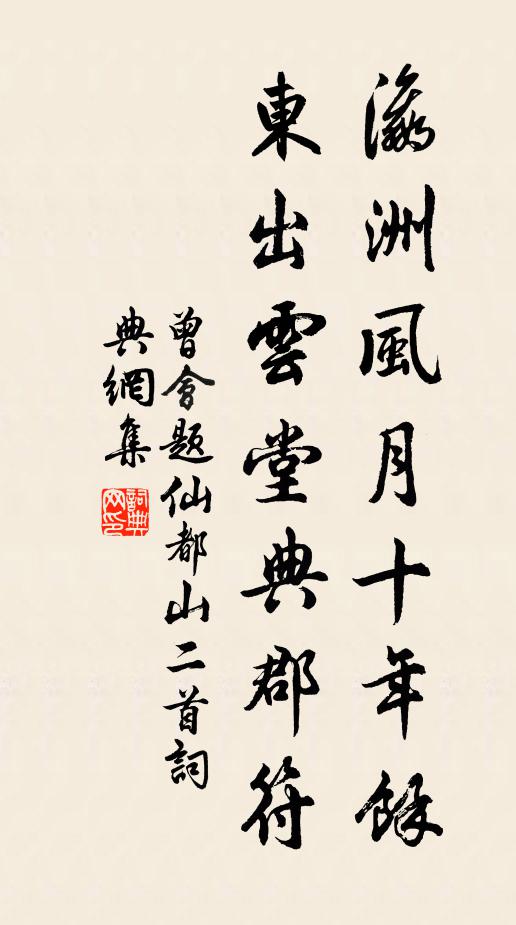 瀛洲風月十年餘
東出雲堂典郡符
曾會題仙都山二首詞
典網集
詞典
网印